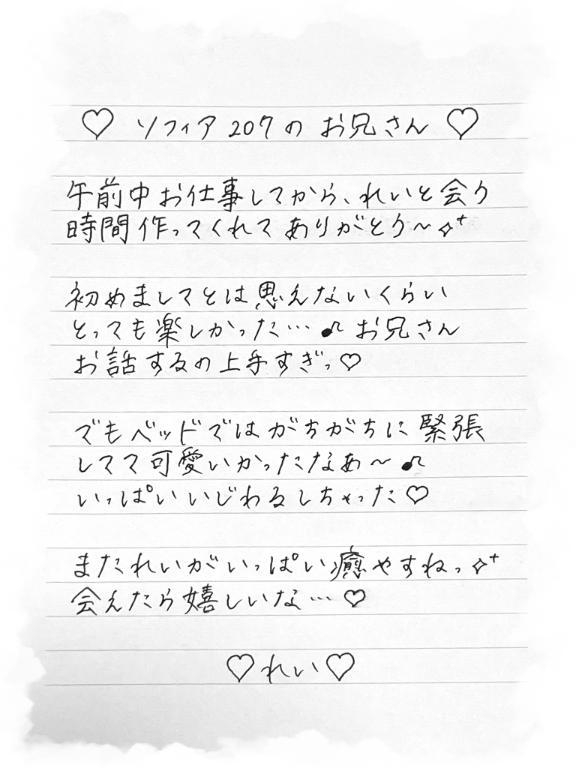 ♡ ソフィア207のお兄さん ♡
午前中お仕事してから、れいと会う
時間作ってくれてありがとう〜✧⁺
初めましてとは思えないくらい
とっても楽しかった…♪ お兄さん
お話するの上手すぎっ♡
でもベッドではがちがちに緊張
してて可愛いかったなあ〜♪
いっぱいいじわるしちゃった♡
またれいがいっぱい癒やすねっ✧⁺
会えたら嬉しいな…♡
♡れい♡